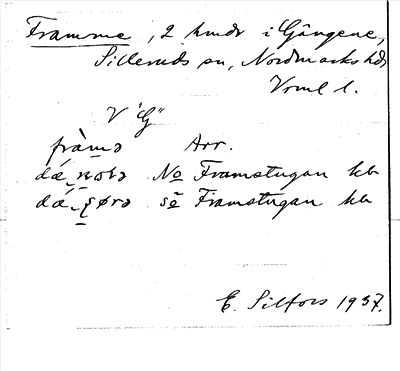 Framme, 2 hmdr i Gängene,
Silleruds sn, Nordmarks hd
Vrml l.
V "G"
fràmə Arr.
dǽ, nolə No Framstugan
dǽ, sørə sö Framstugan
E. Silfors 1937.